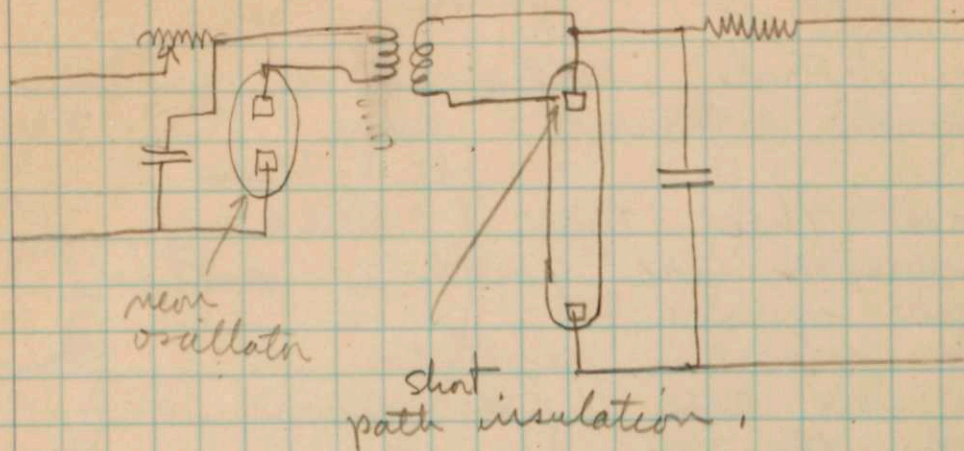 neon
oscillator
short
path insulation.